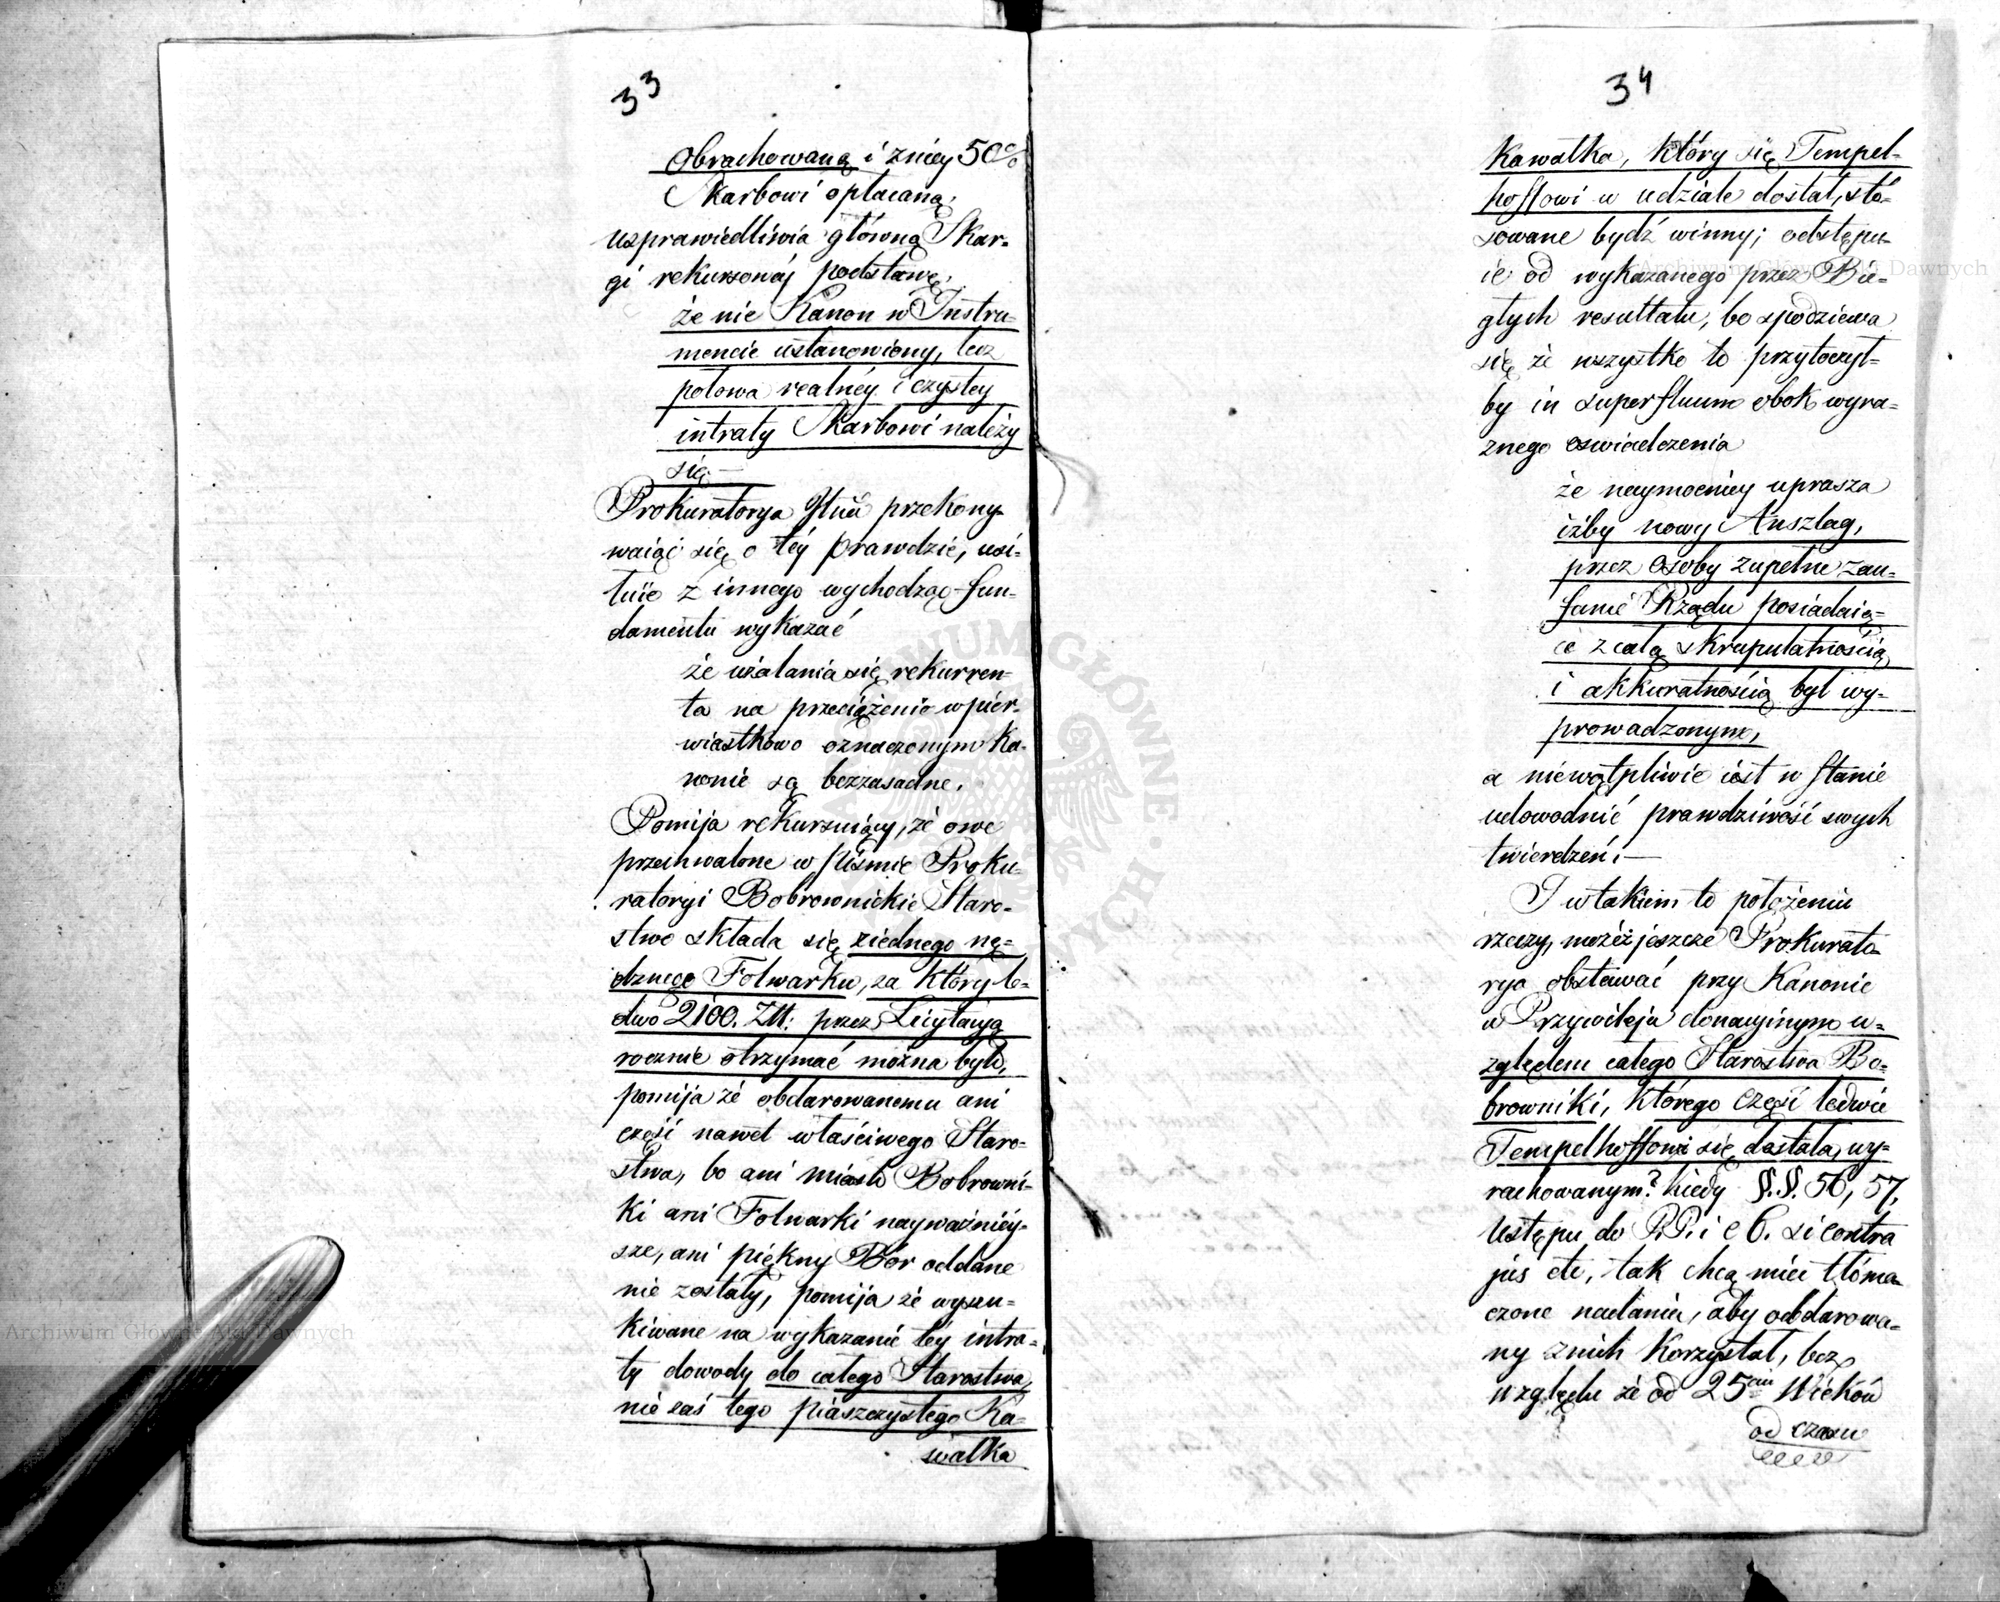 33
Obrachowaną i zniey 50%
Skarbowi opłacaną,
usprawiedliwia główną Skar-
gi rekursowéj podstawę,
że nie Kanon w Instru-
mencie ustanowiony, lecz
połowa realnéy i czystey
intraty Skarbowi należy
się. —
Prokuratorya przekony-
waiąc się o téy prawdzie, usi-
łuie z innego wychodząc fun-
damentu wykazać
że użalania się rekurren-
ta na przeciążenie w piér-
wiastkowo oznaczonym Ka-
nonie są bezzasadne.
Pomija rekursuiący, że owe
przechwalone w piśmie Proku-
ratoryi Bobrownickie Staro-
stwo składa się z iednego nę-
dznego Folwarku, za który le-
dwo 2100. Złt: przez Licytacyą
rocznie otrzymać można było,
pomija że obdarowanemu ani
część nawet właściwego Staro-
stwa, bo ani miasto Bobrowni-
ki ani Folwarki nayważniéy-
sze, ani piękny Bór oddane
nie zostały, pomija że wyszu-
kiwane na wykazanie téy intra-
ty dowody do całego Starostwa,
nie zaś tego piaszczystego Ka-
wałka
34
Kawałka, który się Tempel-
hoffowi w udziale dostał, stó-
sowane bydź winny; odstępu-
ie od wykazanego przez Bie-
głych resultatu, bo spodziewa
się że wszystko to przytoczył-
by in superfluum obok wyra-
znego oswiadczenia
że naymocniey uprasza
iżby nowy Anszlag,
przez osoby zupełne zau-
fanie Rządu posiadaią-
ce z całą skrupulatnością
i akkuratnością był wy-
prowadzonym,
a niewątpliwie iest w stanie
udowodnić prawdziwość swych
twierdzeń. —
I w takiem to położeniu
rzeczy, możeż jeszcze Prokurato-
rya obstawać przy Kanonie
w Przywileju donacyinym w-
zględem całego Starostwa Bo-
browniki, którego część ledwie
Tempelhoffowi się dostała, wy-
rachowanym? kiedy §.§. 56, 57,
Wstępu do P.P. i c 6. si contra
jus etc, tak chcą mieć tłóma-
czone nadania, aby obdarowa-
ny z nich korzystał, bez
względu że od 25ciu Wieków
od czasu
Archiwum Główne Akt Dawnych